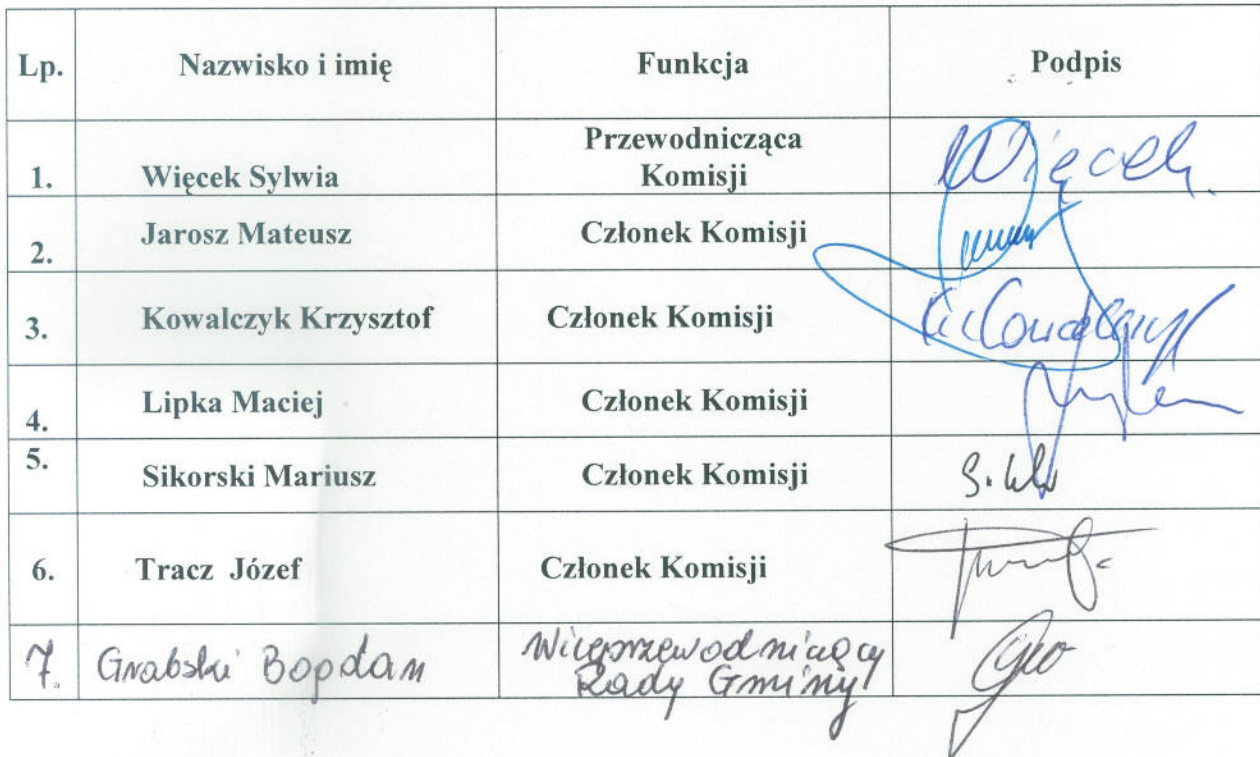 Lp. Nazwisko i imię Funkcja Podpis
Przewodnicząca
1. Więcek Sylwia Komisji Więcek.
2. Jarosz Mateusz Członek Komisji
3. Kowalczyk Krzysztof Członek Komisji
4. Lipka Maciej Członek Komisji
5. Sikorski Mariusz Członek Komisji
6. Tracz Józef Członek Komisji
7. Grabski Bogdan Wiceprzewodniczący
Rady Gminy